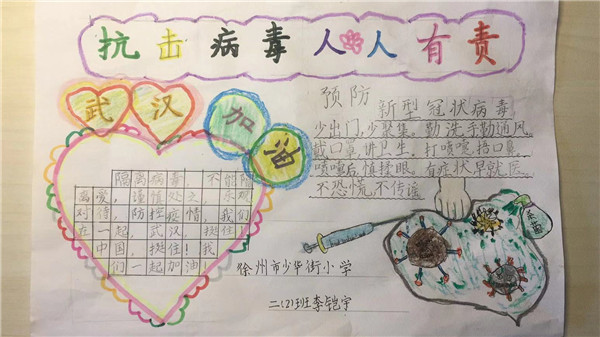 抗击病毒人人有责
武汉加油
预防
新型冠状病毒
少出门,少聚集。勤洗手勤通风
戴口罩,讲卫生。打喷嚏,捂口鼻
喷嚏后,慎揉眼。有症状早就医
不恐慌,不传谣
隔离病毒 不能隔
离爱,谨慎处之,乐观
对待,防控疫情,我们
在一起,武汉 挺住
中国,挺住!我
们一起加油
徐州市少华街小学
二(2)班李铠宇